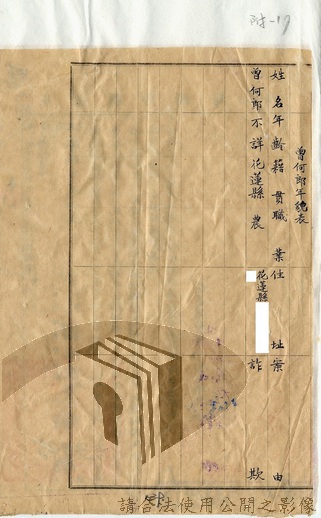 附-17
曾何郎年貌表
姓名年齡籍貫職業住址案由
曾何郎不詳花蓮縣農花蓮縣詐欺
請合法使用公開之影像